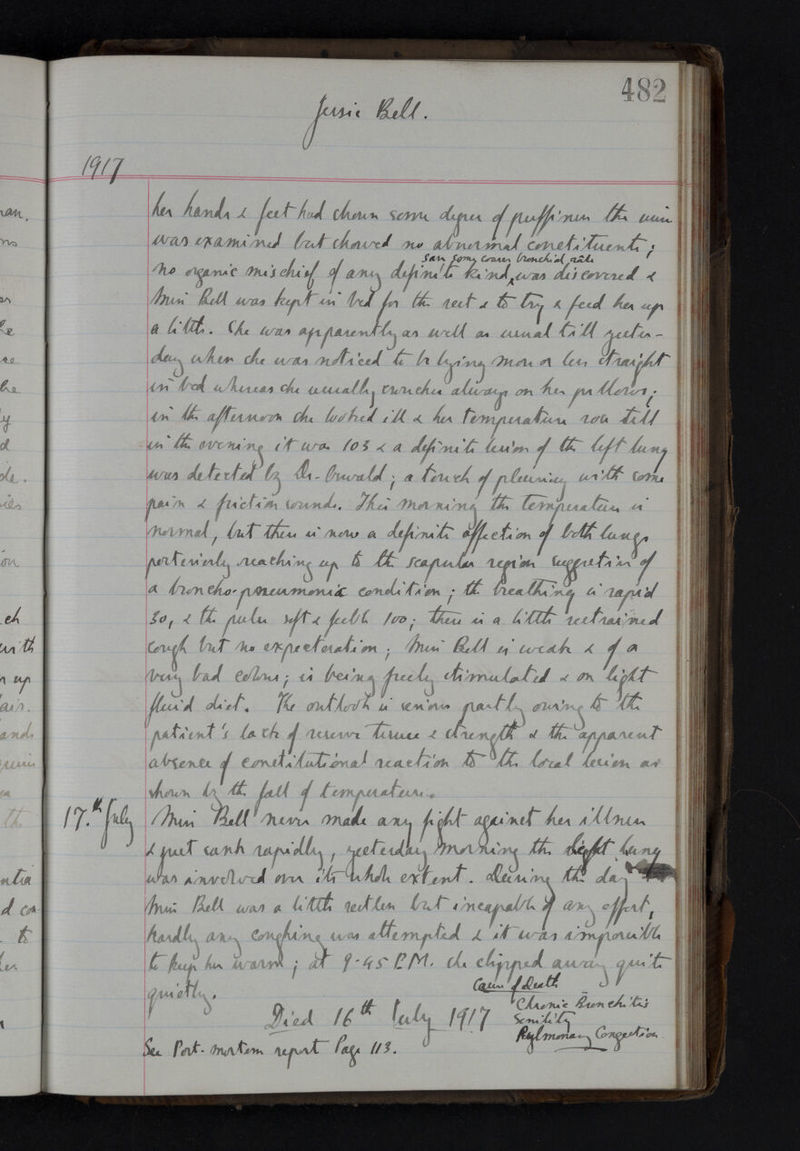 482
Jessie Bell.
1917
her hands & feet had shown some degree of puffiness the urine
was examined but showed no abnormal constituents;
save some coarse bronchial râles
no organic mischief of any definite kind, was discovered &
Miss Bell was kept in bed for the rest & to try & feed her up
a little. She was apparently as well as usual till yester-
day when she was noticed to be lying more or less straight
in bed whereas she usually crouches always on her pillows;
in the afternoon she looked ill & her temperature rose till
in the evening it was 103 & a definite lesion of the left lung
was detected by Dr. Oswald; a touch of pleurisy with some
pain & friction sounds. This morning the temperature is
normal, but there is now a definite affection of both lungs
posteriorly reaching up to the scapular region suggestive of
a broncho-pneumonic condition; the breathing is rapid
30, & the pulse soft & feeble 100; there is a little restrained
cough but no expectoration; Miss Bell is weak & of a
very bad colour; is being freely stimulated & on light
fluid diet. The outlook is serious partly owing to the
patient's lack of reserve & strength & the apparent
absence of constitutional reaction to the local lesion as
shown by the fall of temperature.
17.th July Miss Bell never made any fight against her illness
& just sank rapidly, yesterday morning the left lung
was involved over its whole extent. During the day
Miss Bell was a little restless but incapable of any effort,
hardly any coughing was attempted & it was impossible
to keep her warm; at 9.45 P.M. she slipped away quite
quietly.
Cause of death
Chronic Bronchitis
Died 16th July 1917
Senility
Pulmonary Congestion
See Post-mortem report Page 113.